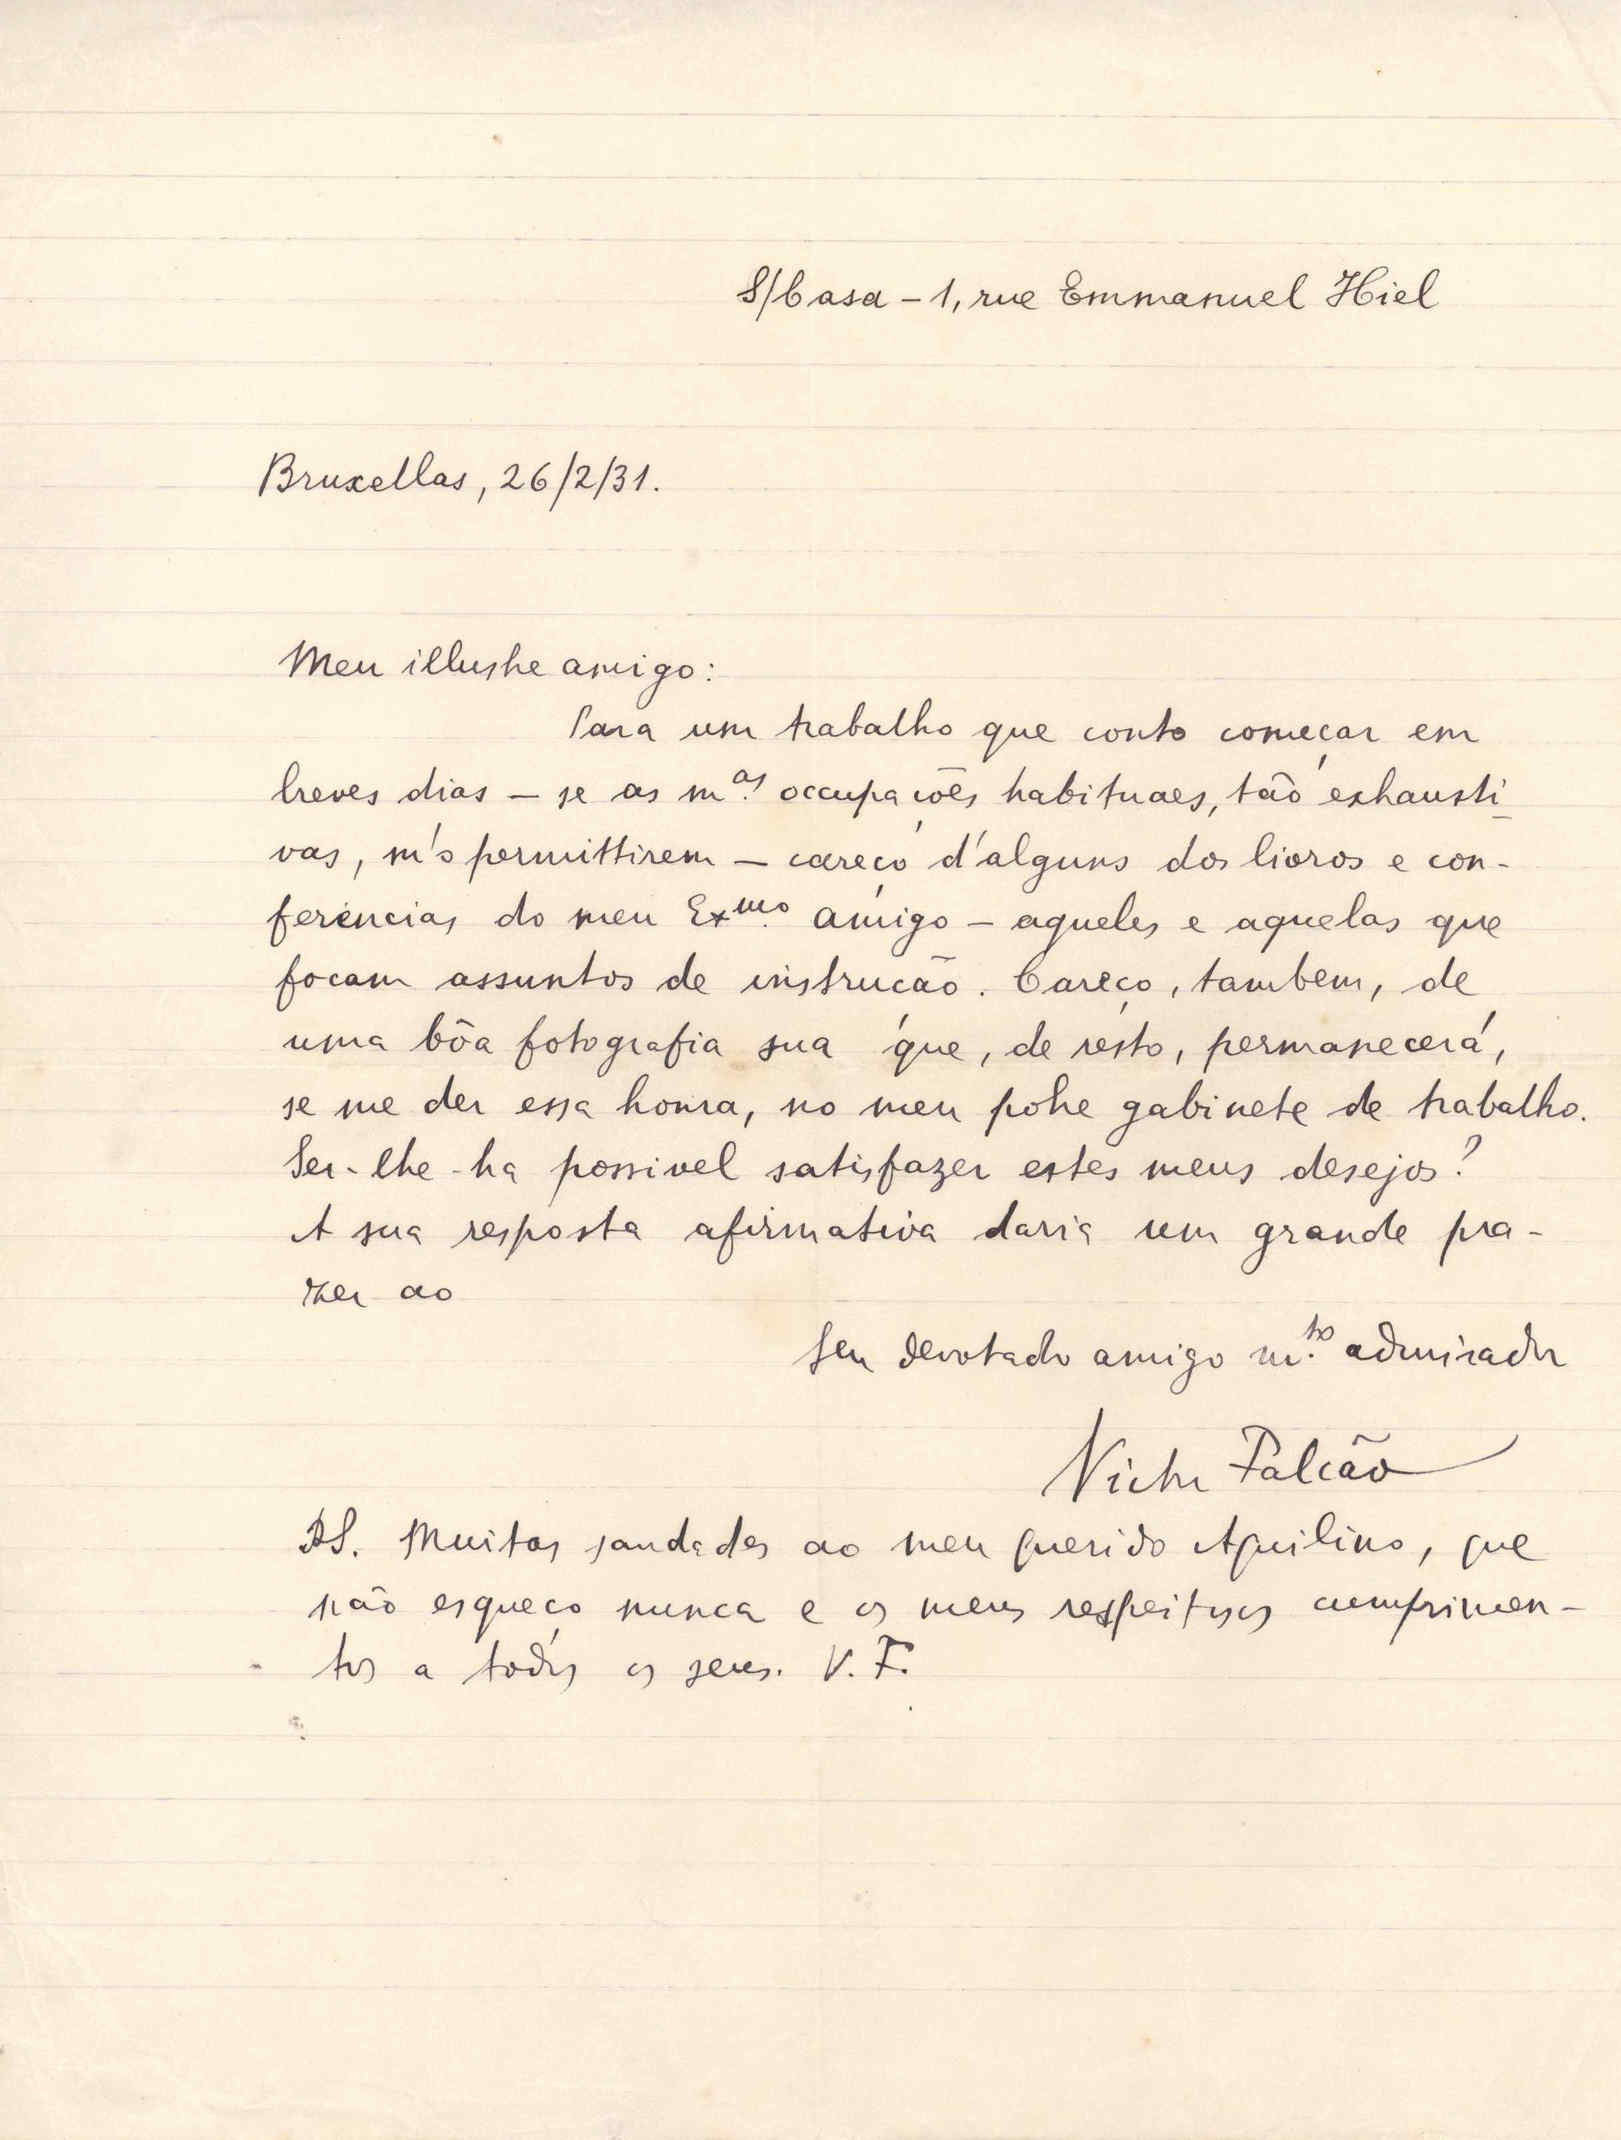 S/Casa – 1, rue Emmanuel Hiel
Bruxellas, 26/2/31.
Meu illustre amigo:
Para um trabalho que conto começar em
breves dias – se as m.as occupações habituaes, tão exhausti-
vas, m'o permittirem – careço d'alguns dos livros e con-
ferências do meu Ex.mo amigo – aqueles e aquelas que
focam assuntos de instrução. Careço, tambem, de
uma bôa fotografia sua que, de résto, permanecerá,
se me der essa honra, no meu pobre gabinete de trabalho.
Ser-lhe-ha possivel satisfazer estes meus desejos?
A sua resposta afirmativa daria um grande pra-
zer ao
Seu devotado amigo m.to admirador
Victor Falcão
P.S. Muitas saudades ao meu querido Aquilino, que
não esqueço nunca e os meus respeitosos cumprimen-
tos a todos os seus. V. F.